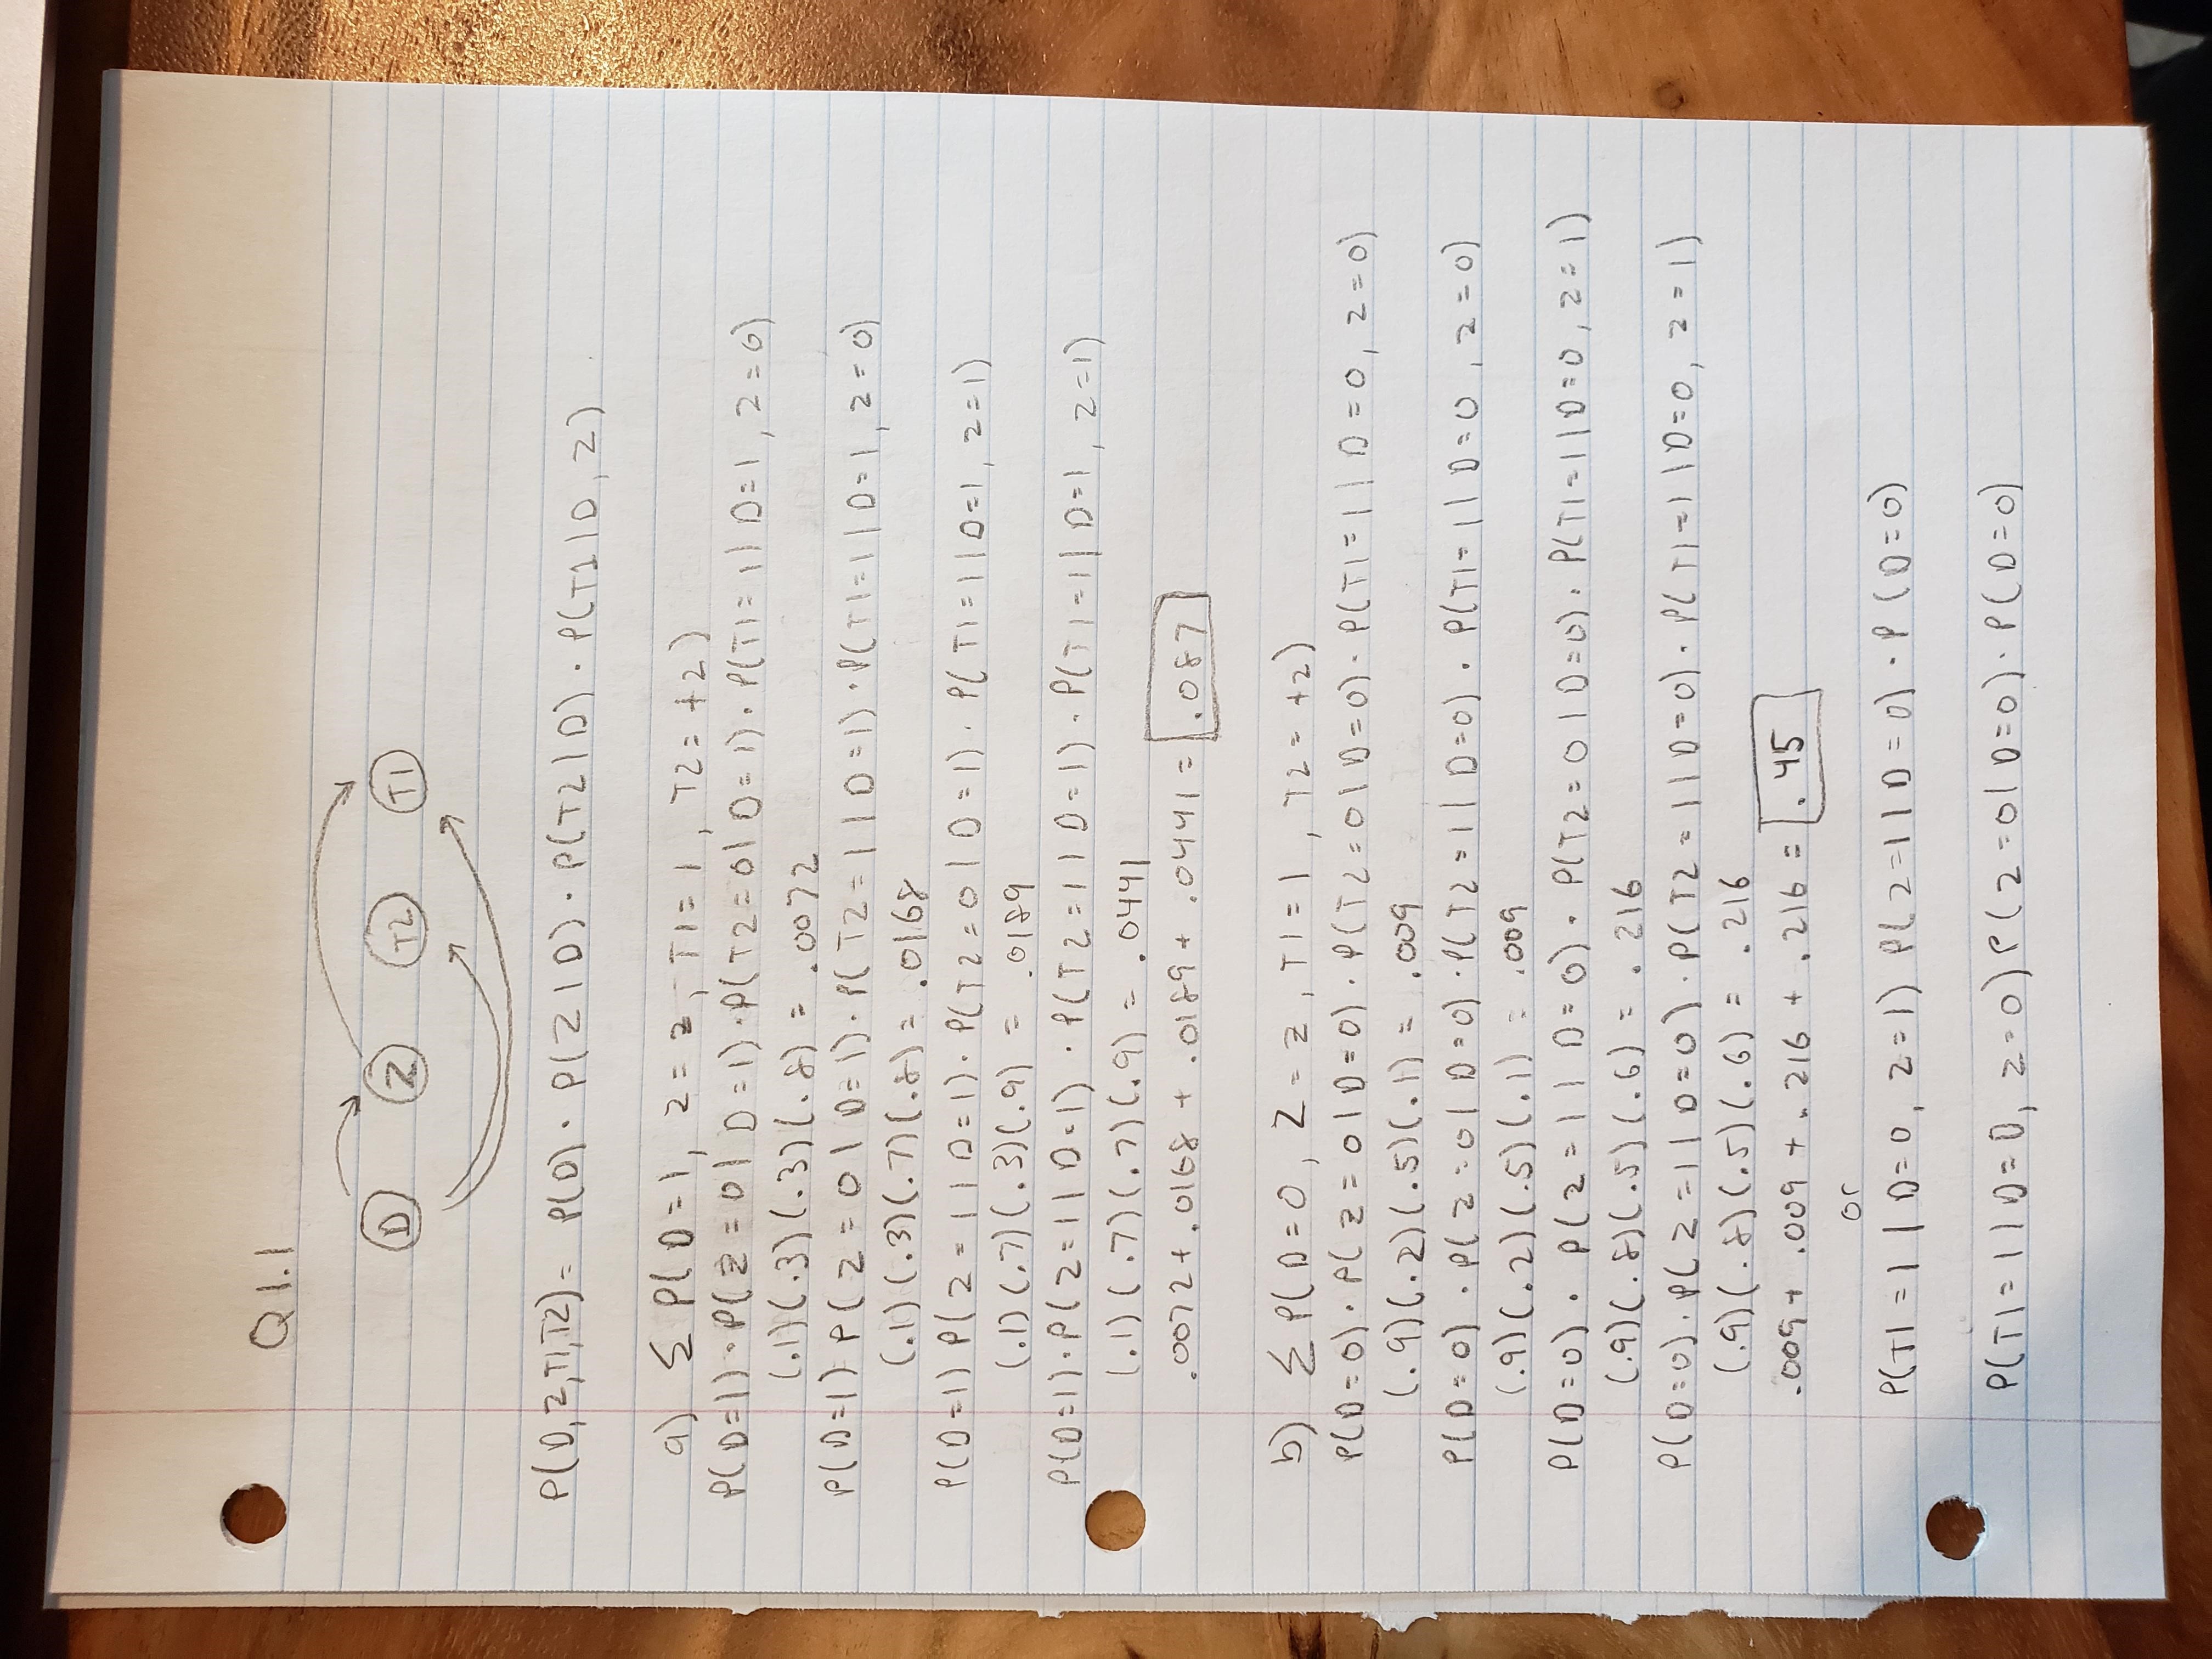 Q1.1
D Z T2 T1
P(D, Z, T1, T2) = P(D) · P(Z | D) · P(T2 | D) · P(T1 | D, Z)
a) Σ P(D=1, Z=z, T1=1, T2=t2)
P(D=1) · P(Z=0 | D=1) · P(T2=0 | D=1) · P(T1=1 | D=1, Z=0)
(.1)(.3)(.3)(.8) = .0072
P(D=1) P(Z=0 | D=1) · P(T2=1 | D=1) · P(T1=1 | D=1, Z=0)
(.1)(.3)(.7)(.8) = .0168
P(D=1) P(Z=1 | D=1) · P(T2=0 | D=1) · P(T1=1 | D=1, Z=1)
(.1)(.7)(.3)(.9) = .0189
P(D=1) · P(Z=1 | D=1) · P(T2=1 | D=1) · P(T1=1 | D=1, Z=1)
(.1)(.7)(.7)(.9) = .0441
.0072 + .0168 + .0189 + .0441 = .087
b) Σ P(D=0, Z=z, T1=1, T2=t2)
P(D=0) · P(Z=0 | D=0) · P(T2=0 | D=0) · P(T1=1 | D=0, Z=0)
(.9)(.2)(.5)(.1) = .009
P(D=0) · P(Z=0 | D=0) · P(T2=1 | D=0) · P(T1=1 | D=0, Z=0)
(.9)(.2)(.5)(.1) = .009
P(D=0) · P(Z=1 | D=0) · P(T2=0 | D=0) · P(T1=1 | D=0, Z=1)
(.9)(.8)(.5)(.6) = .216
P(D=0) · P(Z=1 | D=0) · P(T2=1 | D=0) · P(T1=1 | D=0, Z=1)
(.9)(.8)(.5)(.6) = .216
.009 + .009 + .216 + .216 = .45
or
P(T1=1 | D=0, Z=1) P(Z=1 | D=0) · P(D=0)
P(T1=1 | D=0, Z=0) P(Z=0 | D=0) · P(D=0)